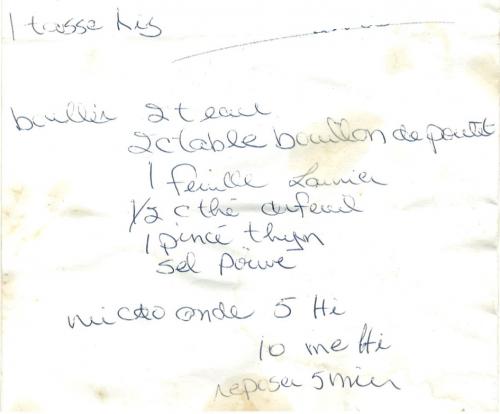 1 tasse Riz
bouillir 2 t eau
2 c table bouillon de poulet
1 feuille Laurier
1/2 c thé cerfeuil
1 pincé thym
sel poivre
micro onde 5 Hi
10 me Hi
reposer 5 min